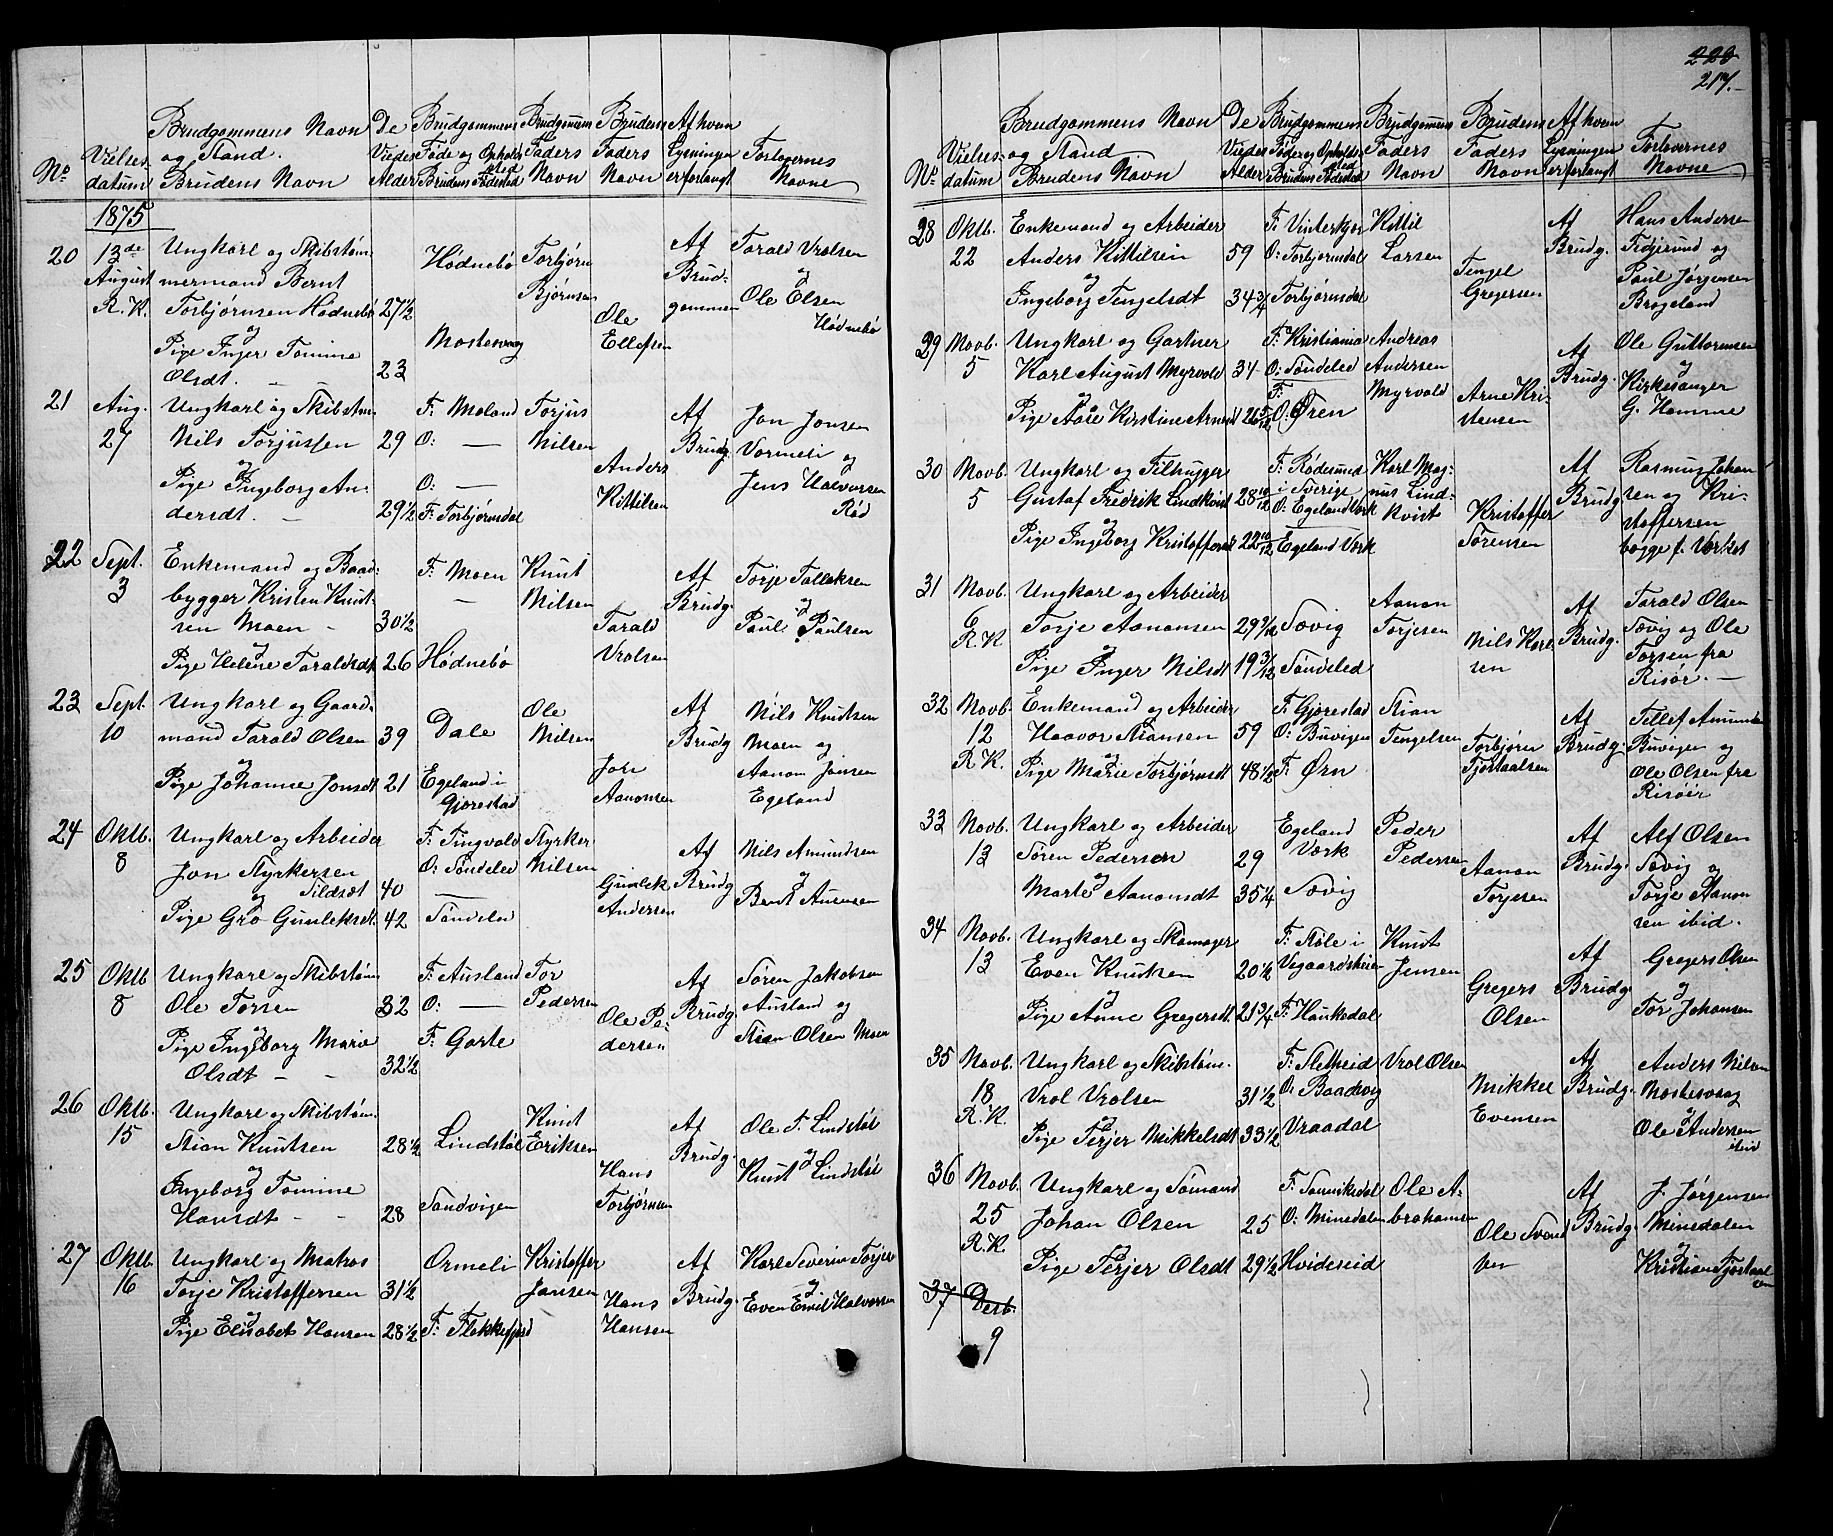 220
217.
No
Vielses-
datum
Brudgommens Navn
og Stand.
Brudens Navn
De
Viedes
Alder
Brudgommens
Føde og Opholds
sted
Brudens Fødested
Brudgommens
Faders
Navn
Brudens
Faders
Navn
Af hvem
Lysningen
er forlangt
Forlovernes
Navne
1875
20 13de August R.K.
Ungkarl og Skibstøm-
mermand Bernt
Torbjørnsen Hødnebø 27½
og
Pige Inger Tomine
Olsdt. — 23
Hødnebø
Mostesvag
Torbjørn
Bjørnsen
Ole
Ellefsen
Af
Brud-
gommen
Tarald Vrolsen
og
Ole Olsen
Hødnebø
21 Aug. 27
Ungkarl og Skibstm
Nils Torjussen 29
og
Pige Ingeborg An-
dersdt. — 29½
F: Moland
O: —
O: —
F: Torbjørnsdal
Torjus
Nilsen
Anders
Kittilsen
Af
Brudg.
Jon Jonsen
Vormeli og
Jens Halvorsen
Rød
22 Sept. 3
Enkemand og Baad-
bygger Kristen Knut-
sen Moen — 30½
og
Pige Helene Taraldsdt 26
F: Moen
—
Hødnebø
Knut
Nilsen
Tarald
Vrolsen
Af
Brudg.
Torje Tallaksen
og
Paul Paulsen
23 Sept. 10
Ungkarl og Gaard-
mand Tarald Olsen 39
og
Pige Johanne Jonsdt 21
Dale
Egeland i
Gjerestad
Ole
Nilsen
Jon
Aanonsen
Af
Brudg
Nils Knutsen
Moen og
Aanon Jonsen
Egeland
24 Oktb. 8
Ungkarl og Arbeider
Jon Styrkersen
Sildsæt 40
og
Pige Gro Gunleksdt. 42
F: Tingvald
O: Søndeled
—
Søndeled
Styrker
Nilsen
Gunlek
Andersen
Af
Brudg
Nils Amundsen
og
Bernt Aunesen
25 Oktb 8
Ungkarl og Skibstøm
Ole Torsen 32
og
Pige Ingeborg Marie
Olsdt — — 32½
F: Ausland
O: —
F: Garte
Tor
Pedersen
Ole Pe-
dersen
Af
Brudg.
Søren Jakobsen
Ausland og
Stian Olsen Moen
26 Oktb. 15
Ungkarl og Skibstøm.
Stian Knutsen 28½
og
Ingeborg Tomine
Hansdt — — 28
Lindstøl
Sandvigen
Knut
Eriksen
Hans
Torbjørnsen
Af
Brudg.
Ole T. Lindstøl
og
Knut Lindstøl
27 Oktb. 16
Ungkarl og Matros
Torje Kristoffersen 31½
og
Pige Elisabet Hansen 28½
Ormeli
F: Flekkefjord
Kristoffer
Jansen
Hans
Hansen
Af
Brudg.
Karl Severin Torjes
og
Even Emil Halvorsen
No
Vielses-
datum
Brudgommens Navn
og Stand
Brudens Navn
De
Viedes
Alder
Brudgommens
Føde og Opholds
sted
Brudens Fødested
Brudgommens
Faders
Navn
Brudens
Faders
Navn
Af hvem
Lysningen
er forlangt
Forlovernes
Navne
28 Oktb. 22
Enkemand og Arbeider
Anders Kittilsen 59
og
Ingeborg Tengelsdt 34¾
F: Vinterkjær
O: Torbjørnsdal
Torbjørnsdal
Kittil
Larsen
Tengel
Gregersen
Af
Brudg.
Hans Andersen
og
Paul Jørgensen
Brogeland
29 Novb. 5
Ungkarl og Gartner
Karl August Myrvold 34
og
Pige Aase Kirstine Arnesdt 26 5/12
F: Kristiania
O: Søndeled
F:
O: Øren
Andreas
Andersen
Myrvold
Arne Kri-
stensen
Af
Brudg.
Ole Guttormsen
og
Kirkesanger
G. Homme
30 Novb. 5
Ungkarl og Filhugger
Gustaf Fredrik Lindkvist 28 10/12
og
Pige Ingeborg Kristoffersdt 22 10/12
F: Rødesund
i Sverige
O: Egeland Værk
Egeland Værk
Karl Mag-
nus Lind-
kvist
Kristoffer
Sørensen
Af
Brudg
Rasmus Johan
sen og Kri-
stoffersen
begge f. Værket
31 Novb. 6 R.K
Ungkarl og Arbeider
Torje Aanonsen 29 9/12
og
Pige Inger Nilsdt 19 3/12
Sævig
Søndeled
Aanon
Torjesen
Nils Karl
sen
Af
Brudg.
Tarald Olsen
Sævig og Ole
Torsen fra
Risør. —
32 Novb. 12 R.K.
Enkemand og Arbeider
Haavor Stiansen 59
og
Pige Marie Torbjørnsdt 48½
F. Gjerestad
O: Buvigen
F: Ørn
Stian
Tengelsen
Torbjørn
Tjøstaalsen
Af
Brudg.
Tellef Amunds
Buvigen og
Ole Olsen fra
Risøer
33 Novb. 13
Ungkarl og Arbeider
Søren Pedersen 29
og
Marte Aanonsdt 35¼
Egeland
Værk
Sævig
Peder
Pedersen
Aanon
Torjesen
Af
Brudg.
Alf Olsen
Sævig
og
Torje Aanon
sen ibid.
34 Novb. 13
Ungkarl og Skomager
Even Knutsen 20½
og
Pige Anne Gregersdt. 21¾
F: Støle i
Vegaardsheien
F: Haukedal
Knut
Jensen
Gregers
Olsen
Af
Brudg.
Gregers Olsen
og
Tor Johansen
35 Novb. 18 R.K.
Ungkarl og Skibstøm.
Vrol Vrolsen 31½
og
Pige Terjer Mikkelsdt 33½
F: Sletheid
O: Baadsvig
Vraadal
Vrol Olsen
Mikkel
Evensen
Af
Brudg.
Anders Nilsen
Mostesvaag
og
Ole Andersen
ibid
36 Novb. 25 R.K.
Ungkarl og Sømand
Johan Olsen 25
og
Pige Terjer Olsdt 29½
F. Sannikedal
O: Minedalen
Hvideseid
Ole A-
brahamsen
Ole Svend
sen
Af
Brudg.
J. Jørgensen
Minedalen
og
Kristian Tjøstaal
sen
37 Desb. 9